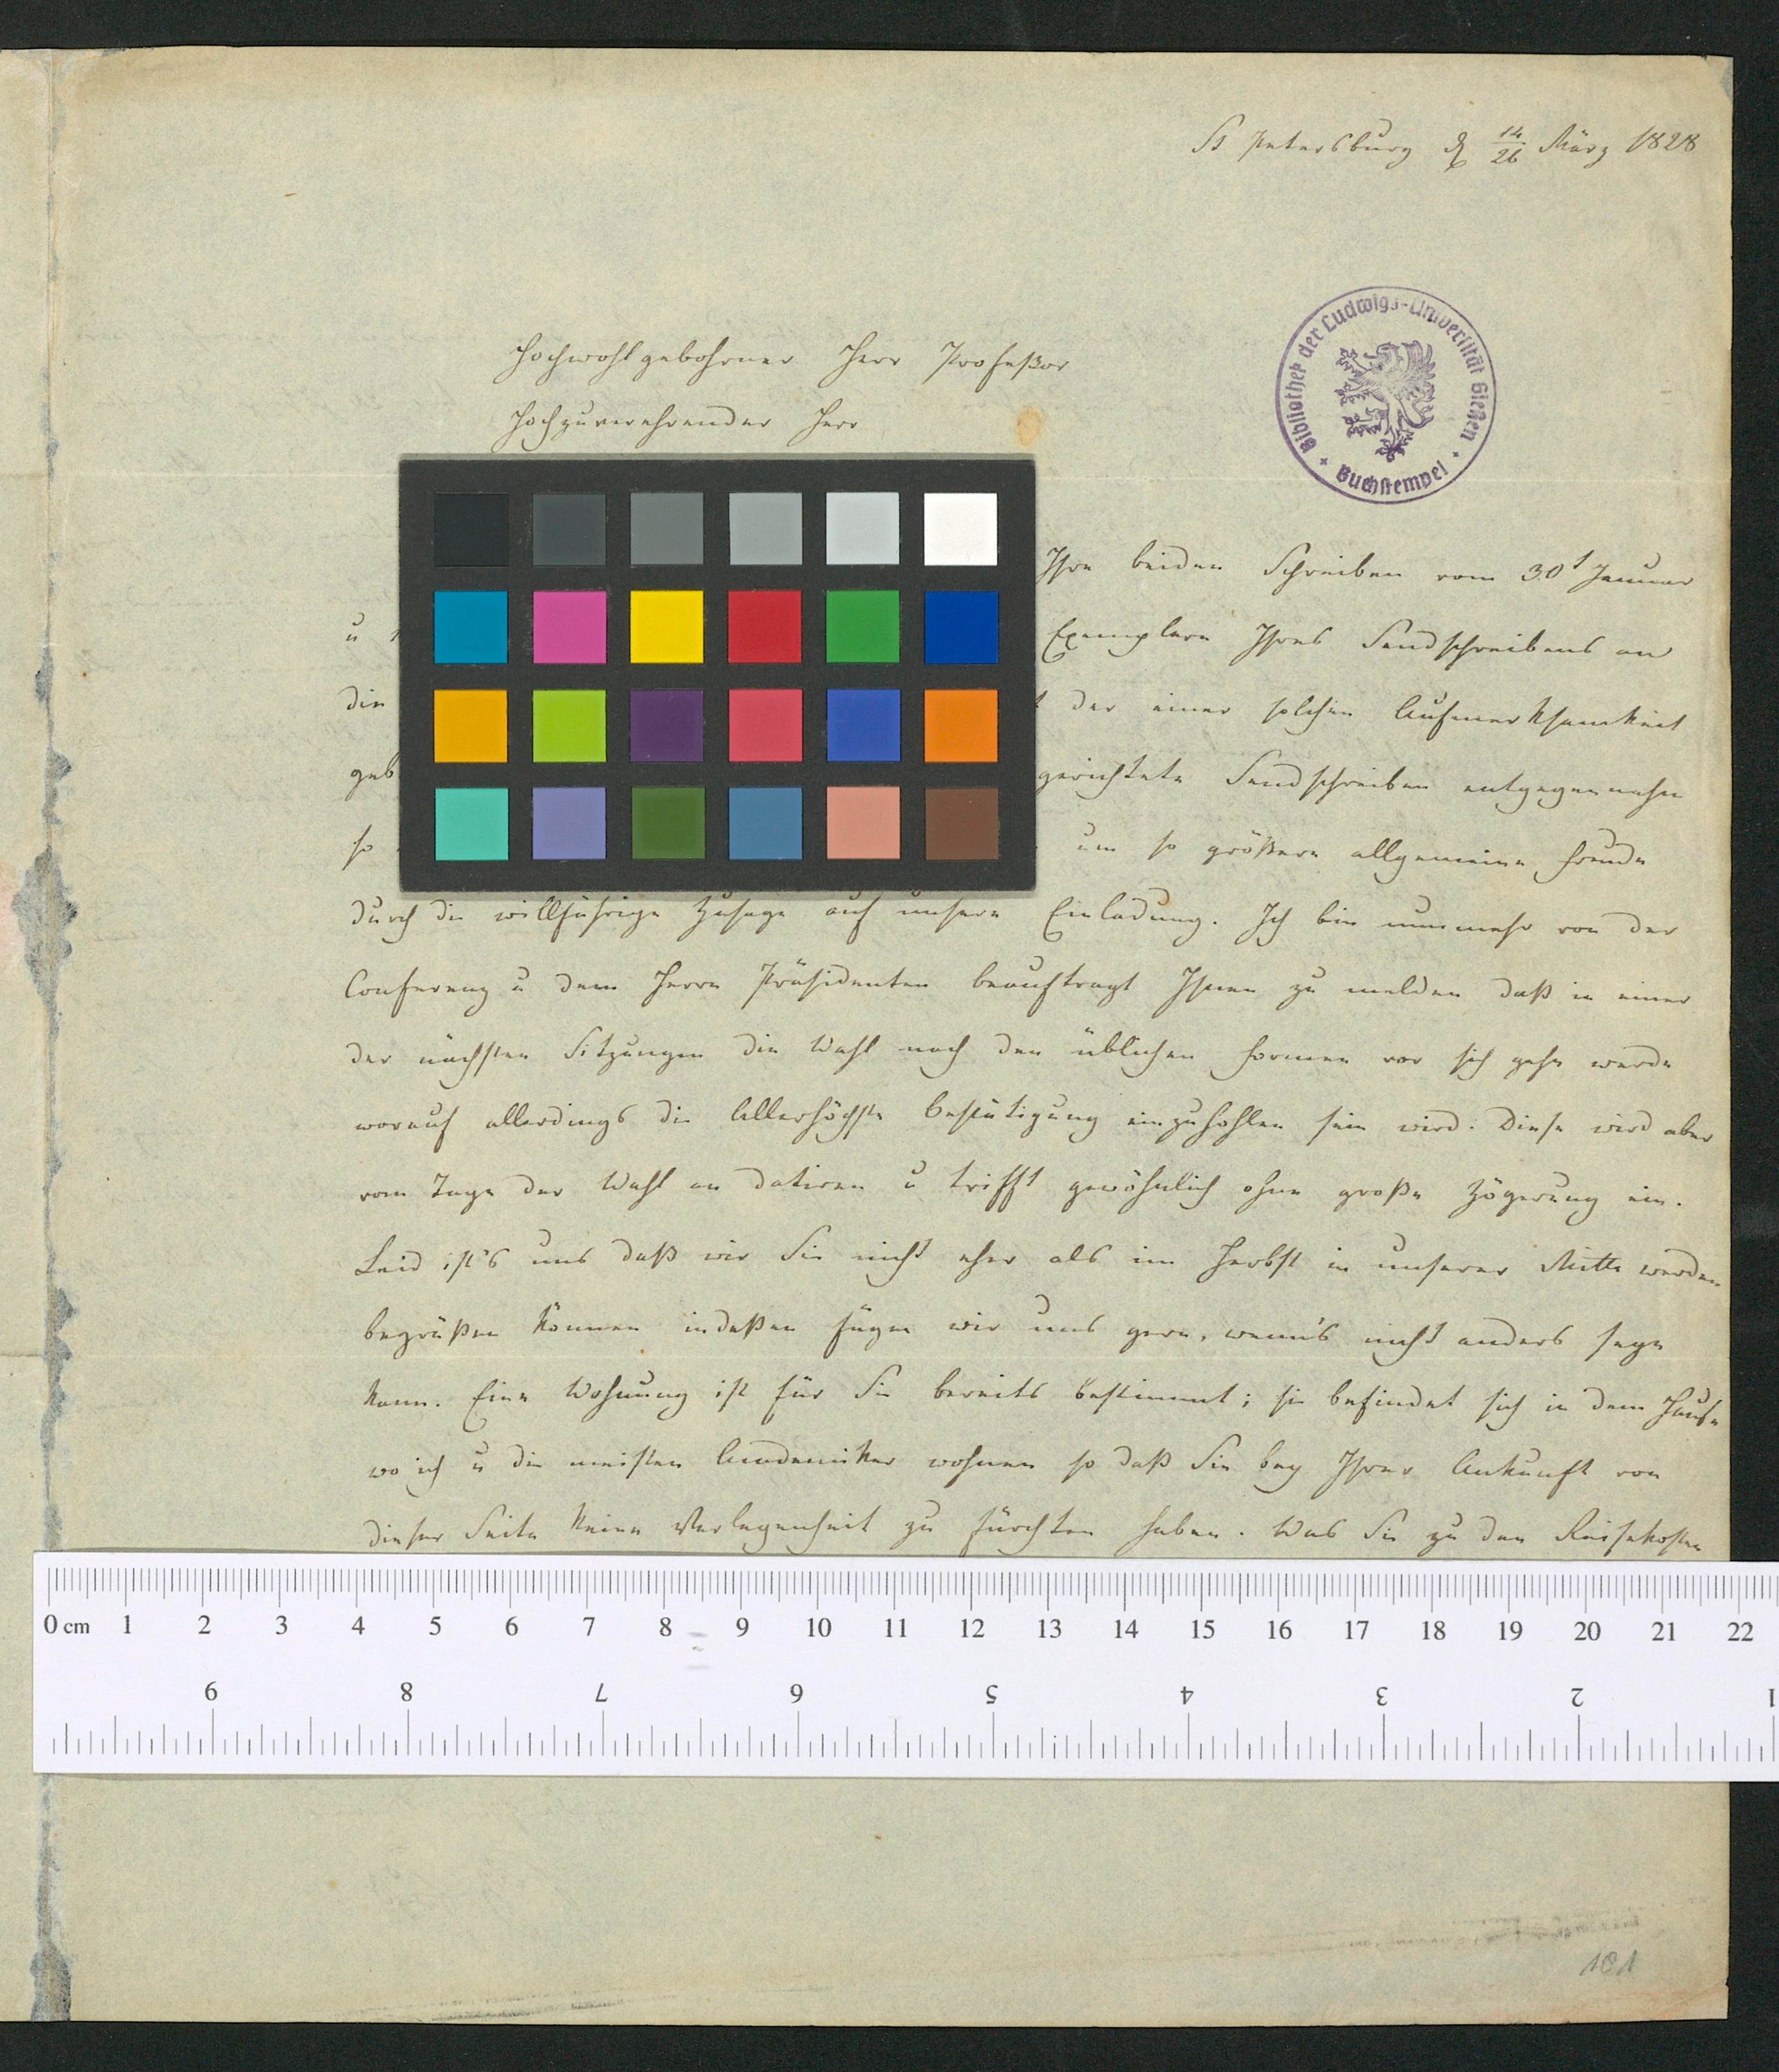 St Petersburg d 14/26 März 1828
Hochwohlgebohrner Herr Profeßor
Hochzuverehrender Herr
Bibliothek der Ludwigs-Universität Gießen
Buchstempel
Ihre beiden Schreiben vom 30t Januar
u Exemplare Ihres Sendschreibens an
die der einer solchen Aufmerksamkeit
geb gerichtete Sendschreiben entgegennahm
so um so größere allgemeine Freude
durch die willfährige Zusage auf unsere Einladung. Ich bin nunmehr von der
Conferenz u dem Herrn Präsidenten beauftragt Ihnen zu melden daß in einer
der nächsten Sitzungen die Wahl nach den üblichen Formen vor sich gehn werde
worauf allerdings die Allerhöchste Bestätigung einzuhohlen sein wird. Diese wird aber
vom Tage der Wahl an datiren u trifft gewöhnlich ohne große Zögerung ein.
Leid ist's uns daß wir Sie nicht eher als im Herbst in unserer Mitte werden
begrüßen können indeßen fügen wir uns gern, wenn's nicht anders seyn
kann. Eine Wohnung ist für Sie bereits bestimmt; sie befindet sich in dem Hause
wo ich u die meisten Academiker wohnen so daß Sie bey Ihrer Ankunft von
dieser Seite keine Verlegenheit zu fürchten haben. Was Sie zu den Reisekosten
0 cm 1 2 3 4 5 6 7 8 9 10 11 12 13 14 15 16 17 18 19 20 21 22
9 8 7 6 5 4 3 2 1
101